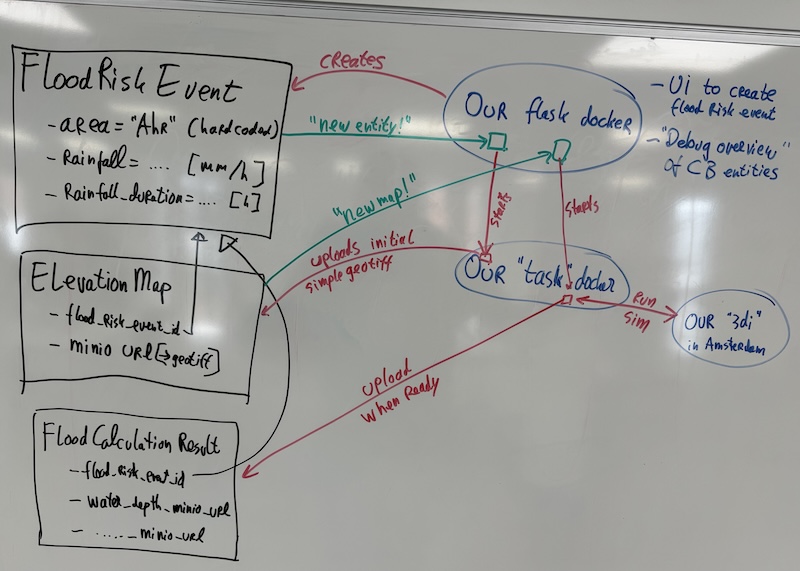 FloodRisk Event
- area = "Ahr" (hardcoded)
- Rainfall = .... [mm/h]
- Rainfall_duration = .... [h]
Elevation Map
- flood_risk_event_id
- minio url [→ geotiff]
Flood Calculation Result
- flood_risk_event_id
- water_depth_minio_url
- ...... _minio_url
creates
"new entity!"
"new map!"
uploads initial
simple geotiff
upload
when ready
Our flask docker
starts
starts
Our "task" docker
run
sim
Our "3di"
in Amsterdam
- Ui to create
flood risk event
- "Debug overview"
of CB entities